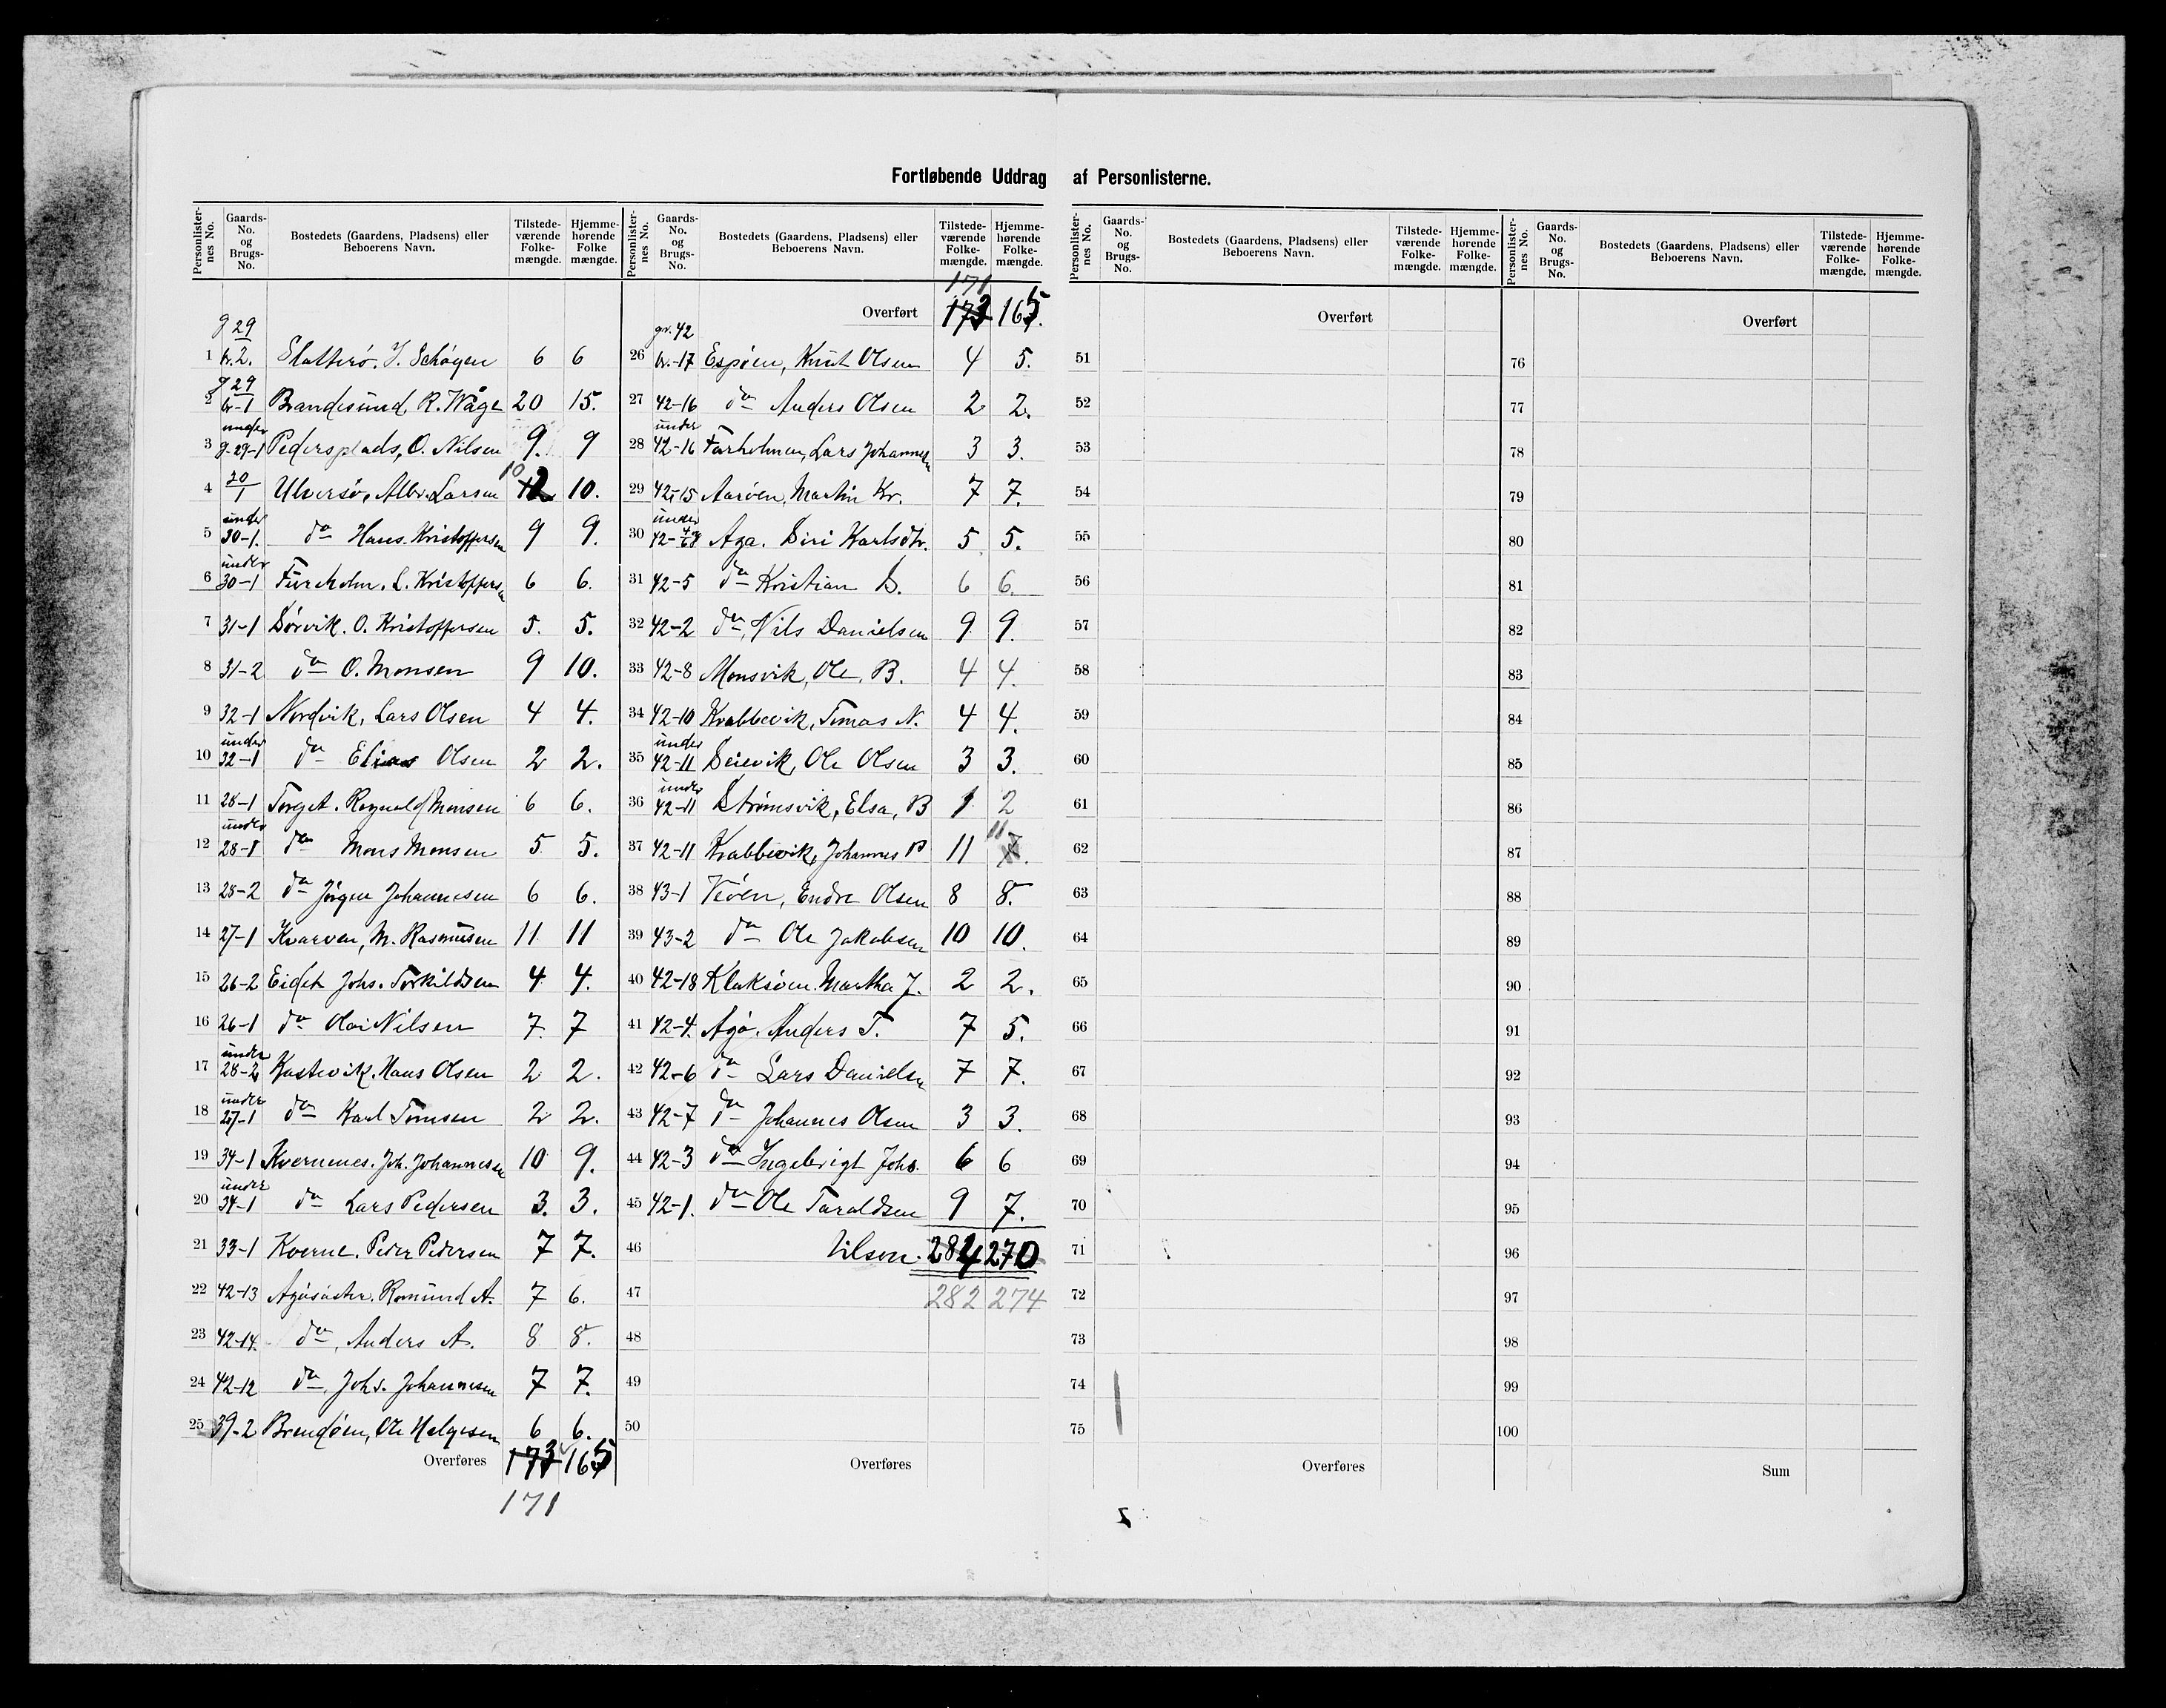 Fortløbende Uddrag af Personlisterne.
Personlisternes No. Gaards-No. og Brugs-No. Bostedets (Gaardens, Pladsens) eller Beboerens Navn. Tilstedeværende Folkemængde. Hjemmehørende Folkemængde.
1 g 29 br. 2. Slatterö. J. Schøyen 6 6
2 g 29 br-1 Brandesund, R. Wåge 20 15.
3 under g. 29-1 Pedersplads, O. Nilsen 9. 9
4 30/1 Ulversö, Albr. Larsen 12 10 10.
5 under 30-1. do Hans Kristoffersen 9 9.
6 under 30-1 Fureholm. L. Kristoffersen 6 6.
7 31-1 Sørvik. O. Kristoffersen 5. 5.
8 31-2 do O. Monsen 9 10.
9 32-1 Nordvik, Lars Olsen 4 4.
10 under 32-1 do Elias Olsen 2 2.
11 28-1 Torget. Ragnald Monsen 6 6.
12 under 28-1 do Mons Monsen 5 5.
13 28-2 do Jörgen Johannesen 6 6.
14 27-1 Kvarven, M. Rasmussen 11 11
15 26-2 Eidet Johs. Torkildsen 4 4.
16 26-1 do Olai Nilsen 7. 7
17 under 28-2 Kastevik. Hans Olsen 2 2.
18 under 27-1 do Karl Tomsen 2 2.
19 34-1 Kvernenes. Joh. Johannesen 10 9.
20 under 34-1 do Lars Pedersen 3. 3.
21 33-1 Kverne. Peder Pedersen 7 7.
22 42-13 Agösöster. Romund A. 7 6.
23 42-14. do, Anders A. 8 8.
24 42-12 do, Johs. Johannesen 7 7.
25 39-2 Brendöen, Ole Helgesen 6 6.
Overføres 173 165
171
Overført 173 171 165.
26 gr. 42 br.-17 Espöen, Knut Olsen 4 5.
27 42-16 do Anders Olsen 2 2.
28 under 42-16 Farholmen, Lars Johannesen 3 3.
29 42-15 Aaröen, Martin Kr. 7 7.
30 under 42- Aga. Siri Karlsdtr. 5 5.
31 42-5 do Kristian D. 6 6.
32 42-2 do, Nils Danielsen 9 9.
33 42-8 Monsvik, Ole. B. 4 4.
34 42-10 Krabbevik, Tomas N. 4 4.
35 under 42-11 Seievik, Ole Olsen 3 3.
36 under 42-11 Strømsvik, Elsa, B 1 2
37 42-11 Krabbevik, Johannes P 11 7. 11
38 43-1 Veöen, Endre Olsen 8 8.
39 43-2 do Ole Jakobsen 10 10.
40 42-18 Klaksöen. Martha J. 2 2.
41 42-4. Agö. Anders T. 7 5.
42 42-6 do Lars Danielsen 7 7.
43 42-7 do Johannes Olsen 3 3.
44 42-3 do Ingebrigt Johs. 6 6
45 42-1. do Ole Taraldsen 9 7.
46 tilsam. 284 270
47 282 274
48
49
50
Overføres
Personlisternes No. Gaards-No. og Brugs-No. Bostedets (Gaardens, Pladsens) eller Beboerens Navn. Tilstedeværende Folkemængde. Hjemmehørende Folkemængde.
Overført
51
52
53
54
55
56
57
58
59
60
61
62
63
64
65
66
67
68
69
70
71
72
73
74
75
Overføres
Overført
76
77
78
79
80
81
82
83
84
85
86
87
88
89
90
91
92
93
94
95
96
97
98
99
100
Sum